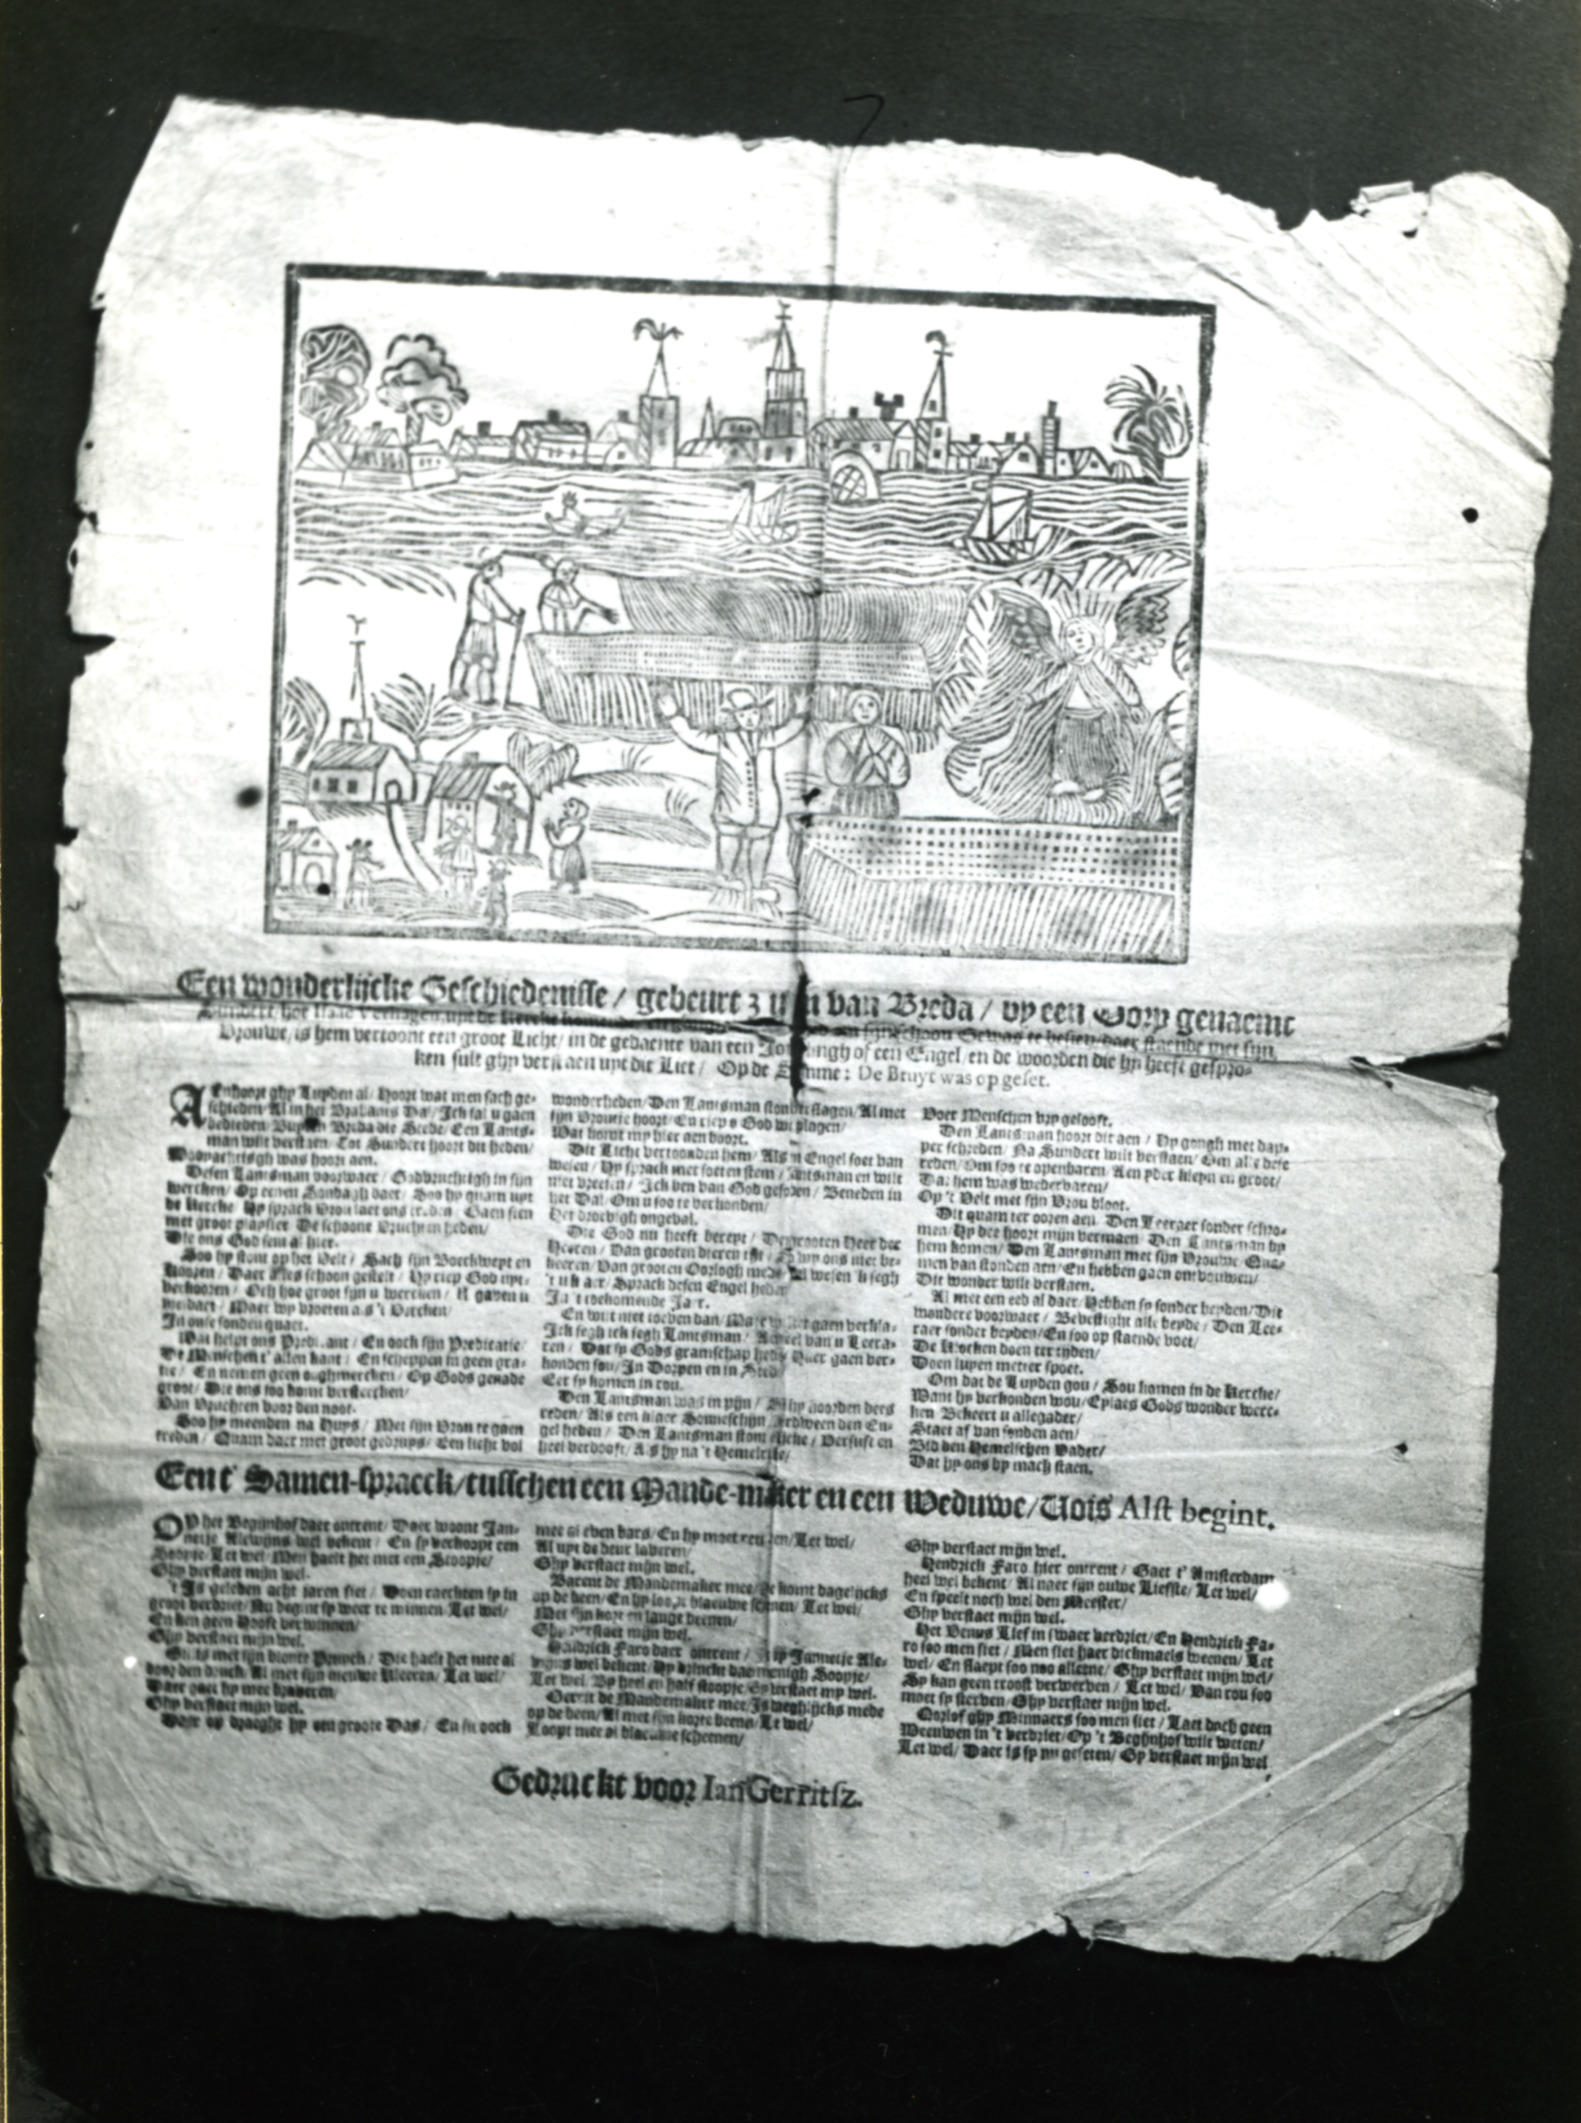 Een wonderlijcke Geschiedenisse / gebeurt van Breda / op een Dorp genaemt
Vrouwe, is hem vertoont een groot Licht / in de gedaente van een of een Engel / en de woorden die hy heeft gespro-
ken sult ghy verstaen uyt dit Liet / Op de : De Bruyt was op geset.
AEnhoort ghy Luyden al / Hoort wat men sach ge-
schieden / Al in het Brabants Dal / Ick sal u gaen
bedieden / Breda die Stede / Een Lants-
man wilt verstaen / Tot Sundert hoort dit heden /
Woonachtigh was hoort aen.
Desen Lantsman voorwaer / Godvruchtigh in sijn
wercken / Op eenen Sondagh daer / Soo hy quam upt
de Kercke / Hy sprack Vrou laet ons treden / Gaen sien
met groot playsier / De schoone Vruchten heden /
Die ons God sent al hier.
Soo hy stont op het Velt / Sach sijn Boeckweyt en
Kooren / Daer schoon gestelt / Hy riep God upt-
verkooren / Och hoe groot sijn u wercken / U gaven u
/ Maer wy
In onse sonden quaet.
Wat helpt ons Predicant / En oock sijn Predicatie /
De Menschen t' allen kant / En scheppen in geen gra-
tie / En nemen geen ooghmercken / Op Gods genade
groot / Die ons soo komt verstercken /
Van Vruchten voor den noot.
Soo hy meenden na Huys / Met sijn Vrou te gaen
treden / Quam daer met groot gedruys / Een licht vol
wonderheden / Den Lantsman stont verslagen / Al met
sijn Vrouwe hoort / En riep o God wi plagen /
Wat komt my hier aen boort.
Dit Licht vertoonden hem / Als 'n Engel soet van
wesen / Hy sprack met soeten stem / Lantsman en wilt
niet vreesen / Ick ben van God gesonden / Beneden in
het Dal / Om u soo te verkonden /
Het droevigh ongeval.
Die God nu heeft bereyt / Den grooten Heer der
Heeren / Van grooten dieren tijt / wy ons niet be-
keeren / Van grooten Oorlogh mede wesen u segh
't is klaer / Sprack desen Engel heden
In 't toekomende Jaer.
En wilt niet toeven dan / gaen verkla-
Ick segh ick segh Lantsman / van u Leera-
ren / Dat sy Gods gramschap heden / gaen ver-
konden sou / In Dorpen en in Steden
Eer sy komen in rou.
Den Lantsman was in pijn / Als hy hoorden dees
reden / Als een klaer Sonneschijn / Verdween den En-
gel heden / Den Lantsman stont / Versuft en
heel verdooft / Als hy na 't Hemelrijck /
Voer Menschen vry gelooft.
Den Lantsman hoort dit aen / Hy gongh met dap-
per schreden / Na Sundert wilt verstaen / Om al dese
reden / Om soo te openbaren / Aen yder kleyn en groot /
Dat hem was wedervaren /
Op 't Velt met sijn Vrou bloot.
Dit quam ter ooren aen / Den Leeraer sonder schro-
men / Hy dee hoort mijn vermaen / Den Lantsman by
hem komen / Den Lantsman met sijn Vrouwe / Qua-
men van stonden aen / En hebben gaen ontvouwen /
Dit wonder wilt verstaen.
Al met een eed al daer / Hebben sy sonder beyden / Dit
wondere voorwaer / Bevestight alle beyde / Den Lee-
raer sonder beyden / En soo op staende voet /
De Klocken doen ter tijden /
Doen luyen met er spoet.
Om dat de Luyden gou / Sou komen in de Kercke /
Want hy verkonden wou / Eylaes Gods wonder werc-
ken / Bekeert u allegader /
Staet af van sonden aen /
Bid den Hemelschen Vader /
Dat hy ons by mach staen.
Een t' Samen-spraeck / tusschen een Mande-maker en een Weduwe / Vois Alst begint.
OP het Begijnhof daer ontrent / Daer woont Jan-
netje Alewijns wel bekent / En sy verkoopt een
Soopje / Let wel / Men haelt het met een Stoopje /
Ghy verstaet mijn wel.
't Is geleden acht jaren siet / Doen raeckten sy in
groot verdriet / Nu begint sy weer te minnen / Let wel /
En ken geen Hooft verwinnen /
Ghy verstaet mijn wel.
met sijn bonte / Die haelt het mee al
voor den / Al met sijn nieuwe Kleeren / Let wel /
Daer gaet hy mee
Ghy verstaet mijn wel.
draeght hy een groote Das / En sie oock
mee al even bars / En hy moet / Let wel /
Al upt de deur laveren /
Ghy verstaet mijn wel.
Barent de Mandemaker mee / Je komt dagelijcks
op de been / En hy loopt blaeuwe schenen / Let wel /
Met sijn korte en lange beenen /
Ghy verstaet mijn wel.
Hendrick Faro daer ontrent / Jannetje Ale-
wijns wel bekent / Hy drinckt daer menigh Soopje /
Let wel / By heel en half stoopje / Gy verstaet my wel.
Gerrit de Mandemaker mee / mede
op de been / Al met sijn korte beenen / Let wel /
Loopt mee al blaeuwe scheenen /
Ghy verstaet mijn wel.
Hendrick Faro hier ontrent / Gaet t' Amsterdam
heel wel bekent / Al naer sijn ouwe Liefste / Let wel /
En speelt noch wel den Meester /
Ghy verstaet mijn wel.
Het Venus Lief in swaer verdriet / En Hendrick Fa-
ro soo men siet / Men siet haer dickmaels weenen / Let
wel / En slaept soo noo alleene / Ghy verstaet mijn wel /
Sy kan geen troost verwerven / Let wel / Van rou soo
moet sy sterven / Ghy verstaet mijn wel.
Oorlof ghy Minnaers soo men siet / Laet doch geen
Weeuwen in 't verdriet / Op 't Begijnhof wilt weten /
Let wel / Daer is sy nu geseten / Gy verstaet mijn wel
Gedruckt voor Ian Gerritsz.